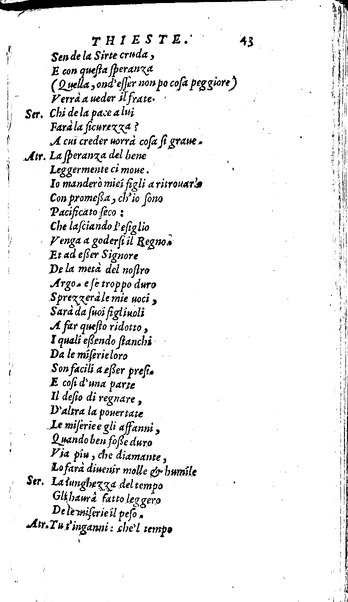 THIESTE. 43
Sen de la Sirte cruda,
E con questa speranza
(Quella, ond'esser non po cosa peggiore)
Verrà a ueder il frate.
Ser. Chi de la pace a lui
Farà la sicurezza?
A cui creder uorrà cosa sì graue.
Atr. La speranza del bene
Leggermente ci moue.
Io manderò miei figli a ritrouarlo
Con promessa, ch'io sono
Pacificato seco:
Che lasciando l'esiglio
Venga a godersi il Regno.
Et ad esser Signore
De la metà del nostro
Argo. e se troppo duro
Sprezzerà le mie uoci,
Sarà da suoi figliuoli
A far questo ridotto,
I quali essendo stanchi
Da le miserie loro
Son facili a esser presi.
E così d'una parte
Il desio di regnare,
D'altra la pouertate
Le miserie e gli affanni,
Quando ben fosse duro
Via piu, che diamante,
Lo farà diuenir molle & humile
Ser. La lunghezza del tempo
Gli haurà fatto leggero
De le miserie il peso.
Atr. Tu t'inganni: che'l tempo